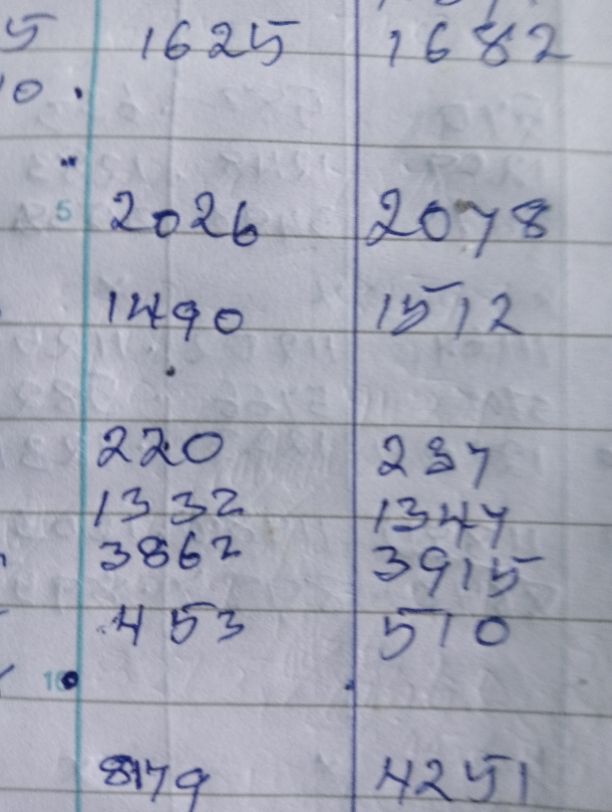 5 1625 1682
10.
5 2026 2078
1490 1512
220 237
1332 1347
3862 3915
453 510
10
4251